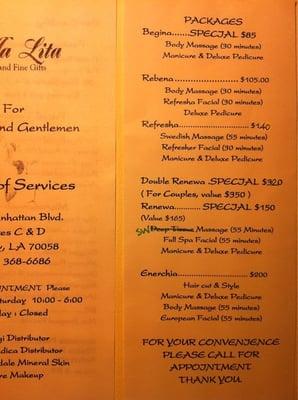 la Lita
and Fine Gifts
For
and Gentlemen
of Services
anhattan Blvd.
es C & D
y, LA 70058
368-6686
INTMENT Please
turday 10:00 - 6:00
day : Closed
gi Distributor
dica Distributor
dale Mineral Skin
re Makeup
PACKAGES
Begina.......SPECIAL $85
Body Massage (30 minutes)
Manicure & Deluxe Pedicure
Rebena ..........................$105.00
Body Massage (30 minutes)
Refresha Facial (30 minutes)
Deluxe Pedicure
Refresha............................$140
Swedish Massage (55 minutes)
Refresher Facial (30 minutes)
Manicure & Deluxe Pedicure
Double Renewa SPECIAL $320
( For Couples, value $350 )
Renewa...........SPECIAL $150
(Value $165)
SW Deep Tissue Massage (55 Minutes)
Full Spa Facial (55 minutes)
Manicure & Deluxe Pedicure
Enerchia............................$200
Hair cut & Style
Manicure & Deluxe Pedicure
Body Massage (55 minutes)
European Facial (55 minutes)
FOR YOUR CONVENIENCE
PLEASE CALL FOR
APPOINTMENT
THANK YOU.